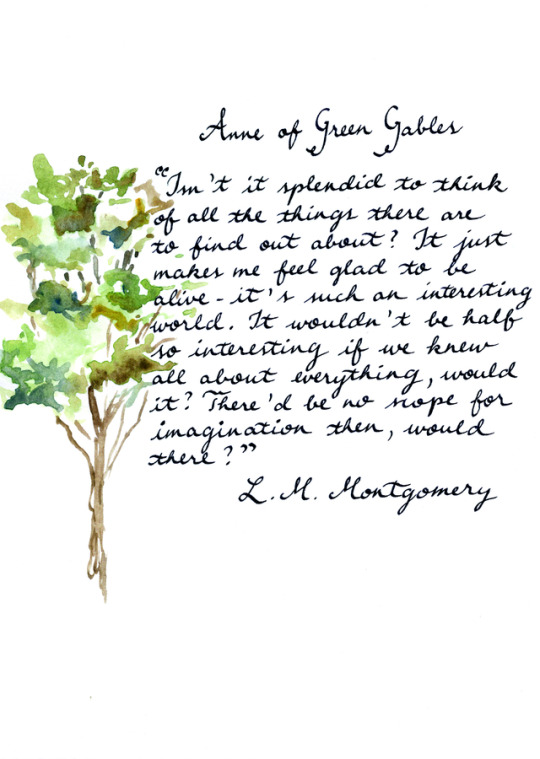 Anne of Green Gables
"Isn't it splendid to think
of all the things there are
to find out about? It just
makes me feel glad to be
alive - it's such an interesting
world. It wouldn't be half
so interesting if we knew
all about everything, would
it? There'd be no scope for
imagination then, would
there?"
L. M. Montgomery